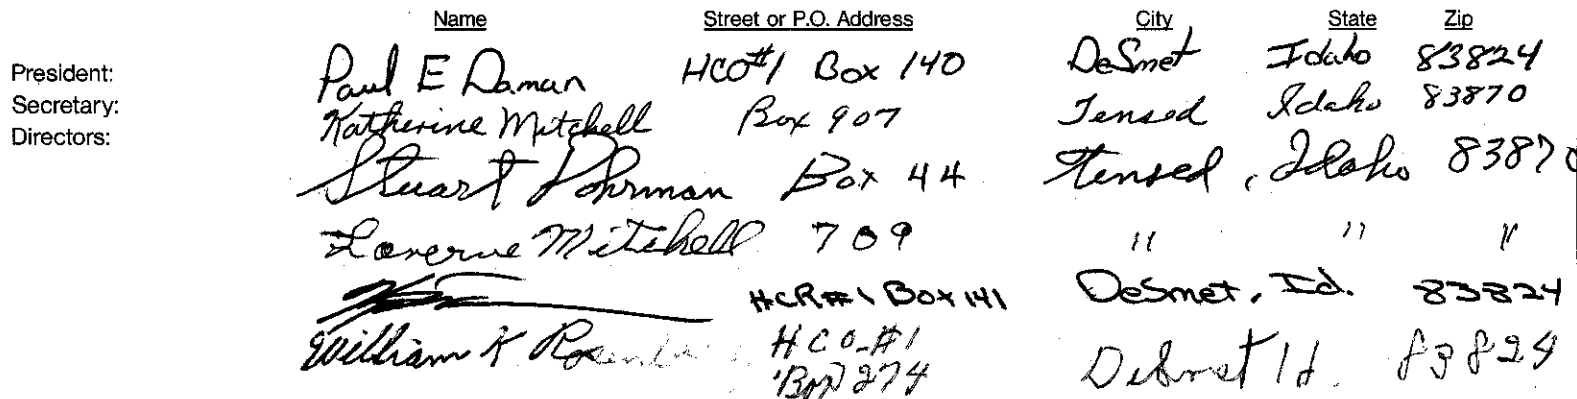 Name Street or P.O. Address City State Zip
President: Paul E Daman HCO#1 Box 140 DeSmet Idaho 83824
Secretary: Katherine Mitchell Box 907 Tensed Idaho 83870
Directors:
Stuart Dohrman Box 44 Tensed, Idaho 83870
Laverne Mitchell 709 " " "
HCR#1 Box 141 DeSmet, Id. 83824
William K HCO-#1 DeSmet Id. 83824
Box 274